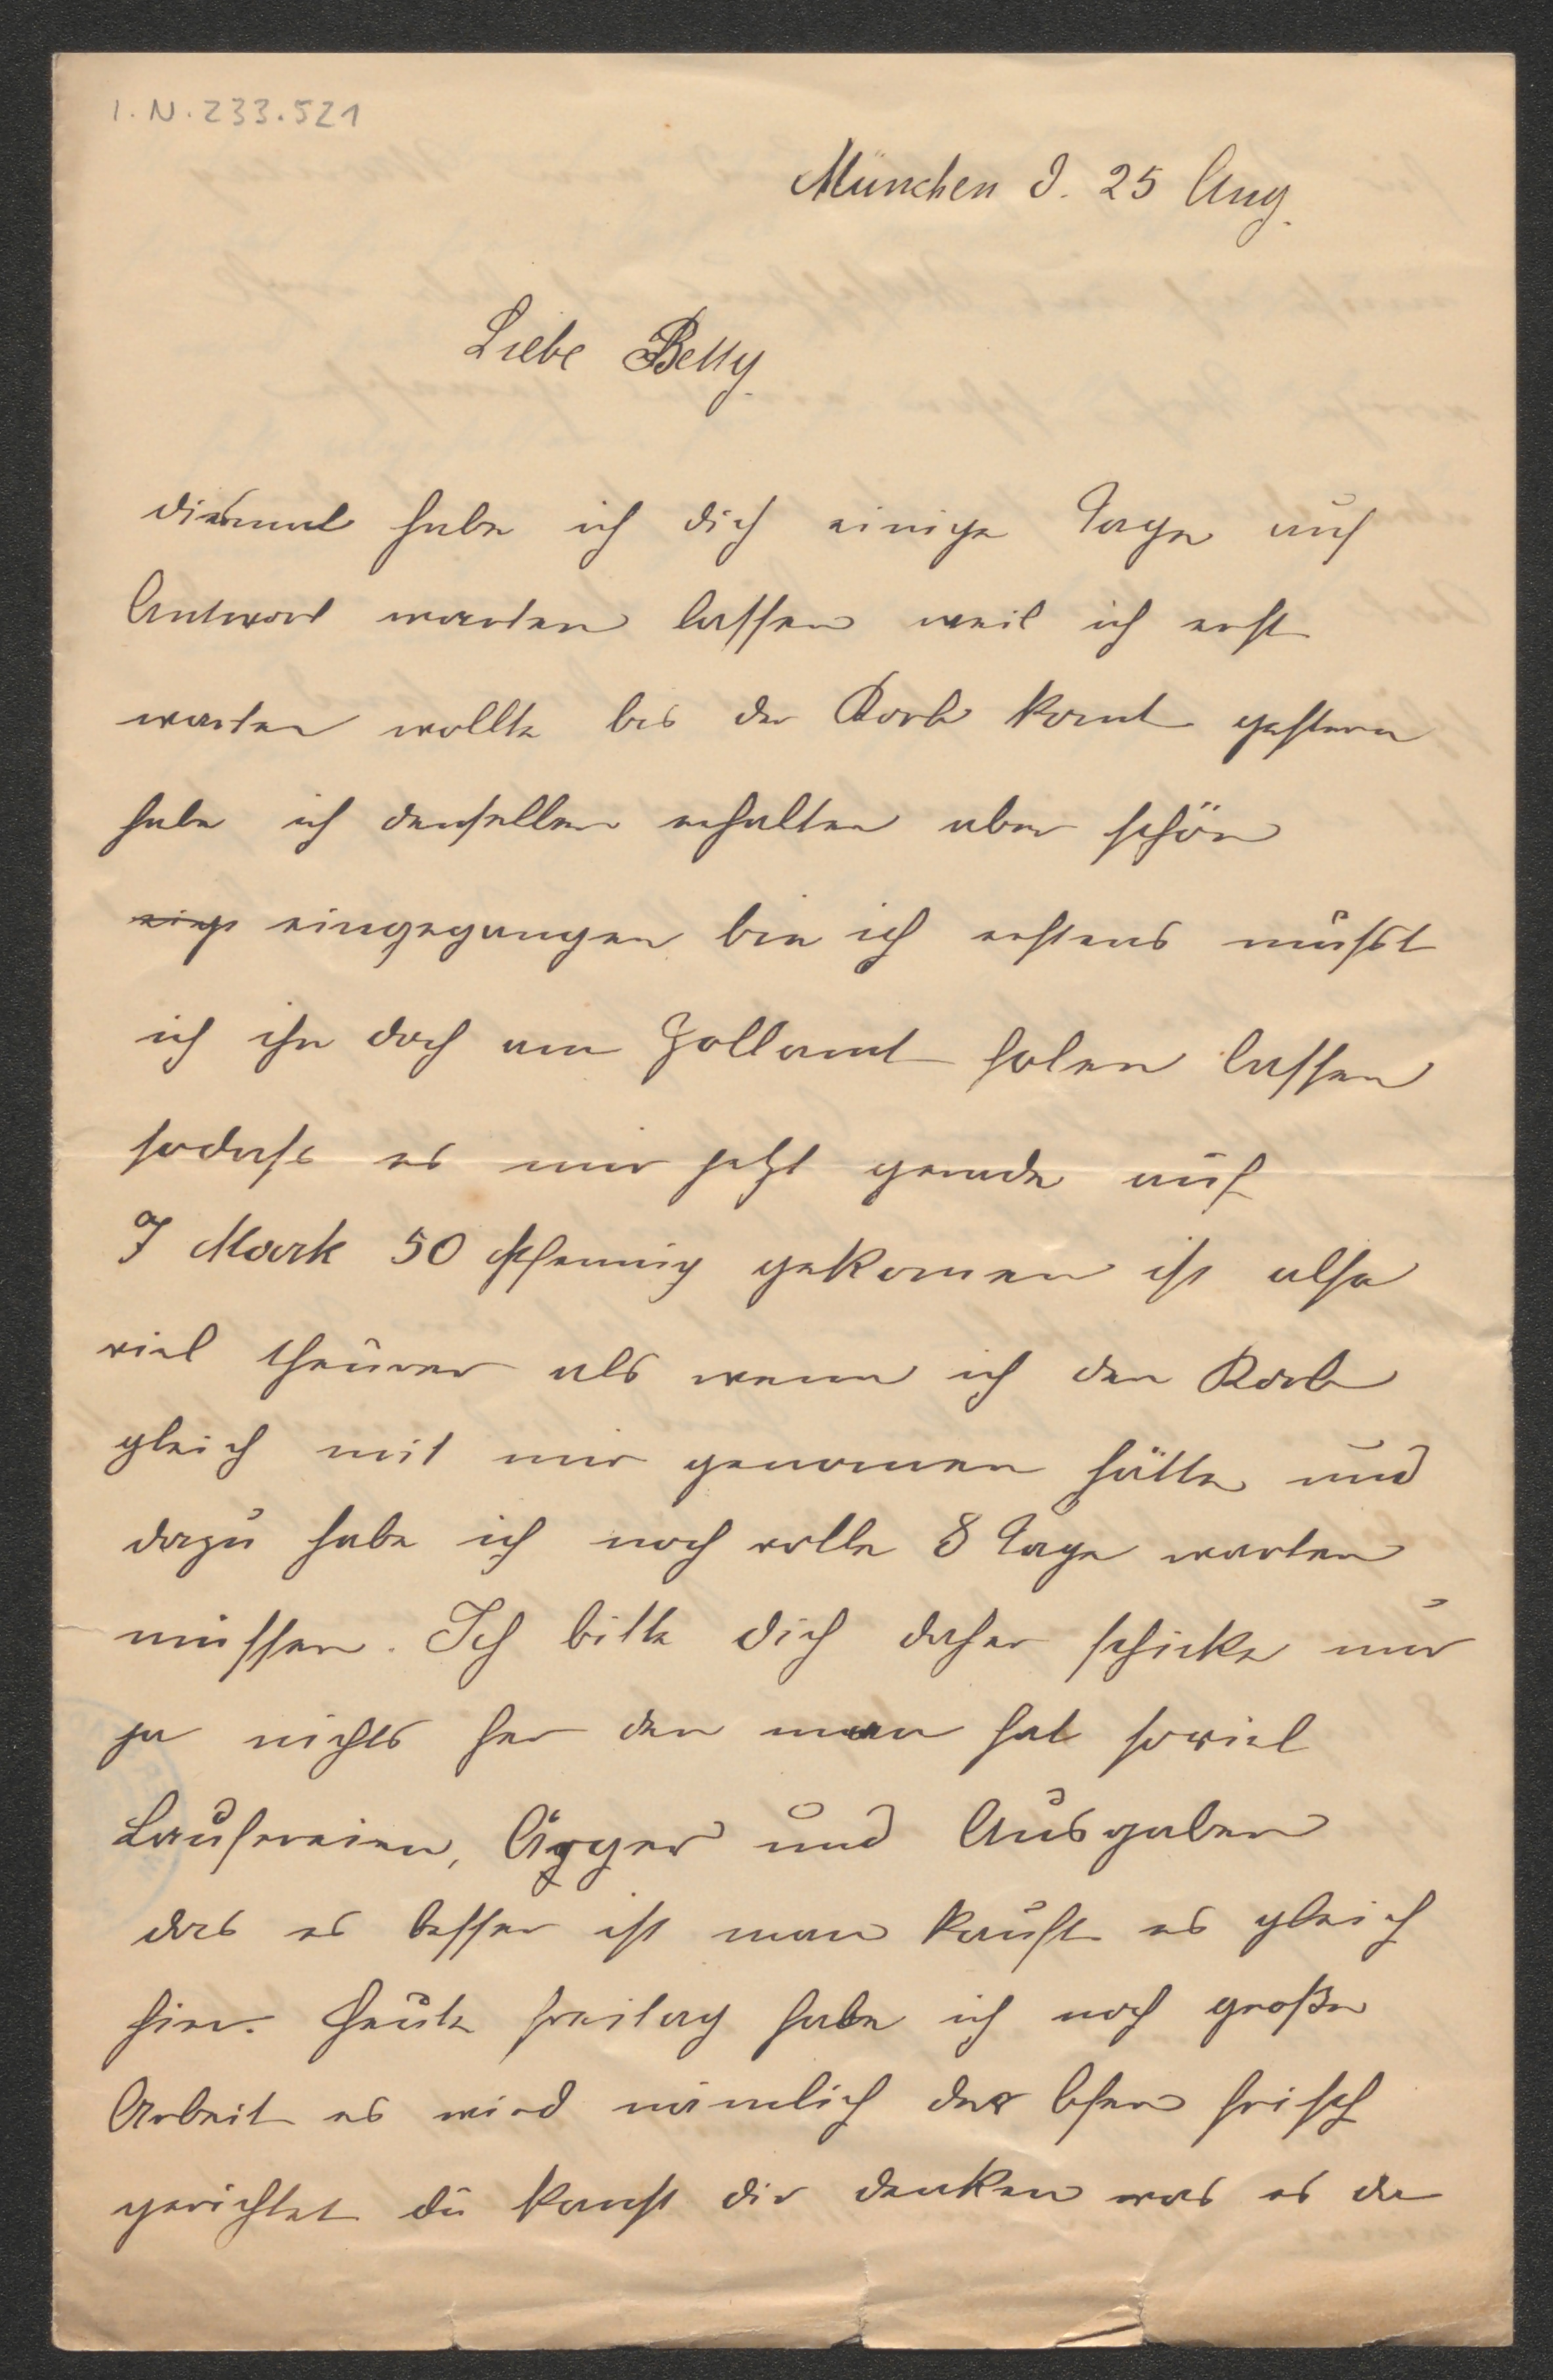 I.N. 233.521
München d. 25 Aug.
Liebe Betty.
diesmal habe ich dich einige Tage auf
Antwort warten lassen weil ich erst
warten wollte bis der Korb komt gestern
habe ich denselben erhalten aber schön
eing eingegangen bin ich erstens mußt
ich ihn doch am Zollamt holen lassen
sodass es mir jetzt gerade auf
7 Mark 50 Pfennig gekomen ist also
viel theurer als wenn ich den Korb
gleich mit mir genomen hätte und
dazu habe ich noch volle 8 Tage warten
müssen. Ich bitte dich daher schicke nur
ja nichts her den man hat soviel
Laufereien, Ärger und Ausgaben
das es besser ist man kauft es gleich
hier. Heute freitag habe ich noch große
Arbeit es wird nämlich der Ofen frisch
gerichtet du kanst dir denken was es da